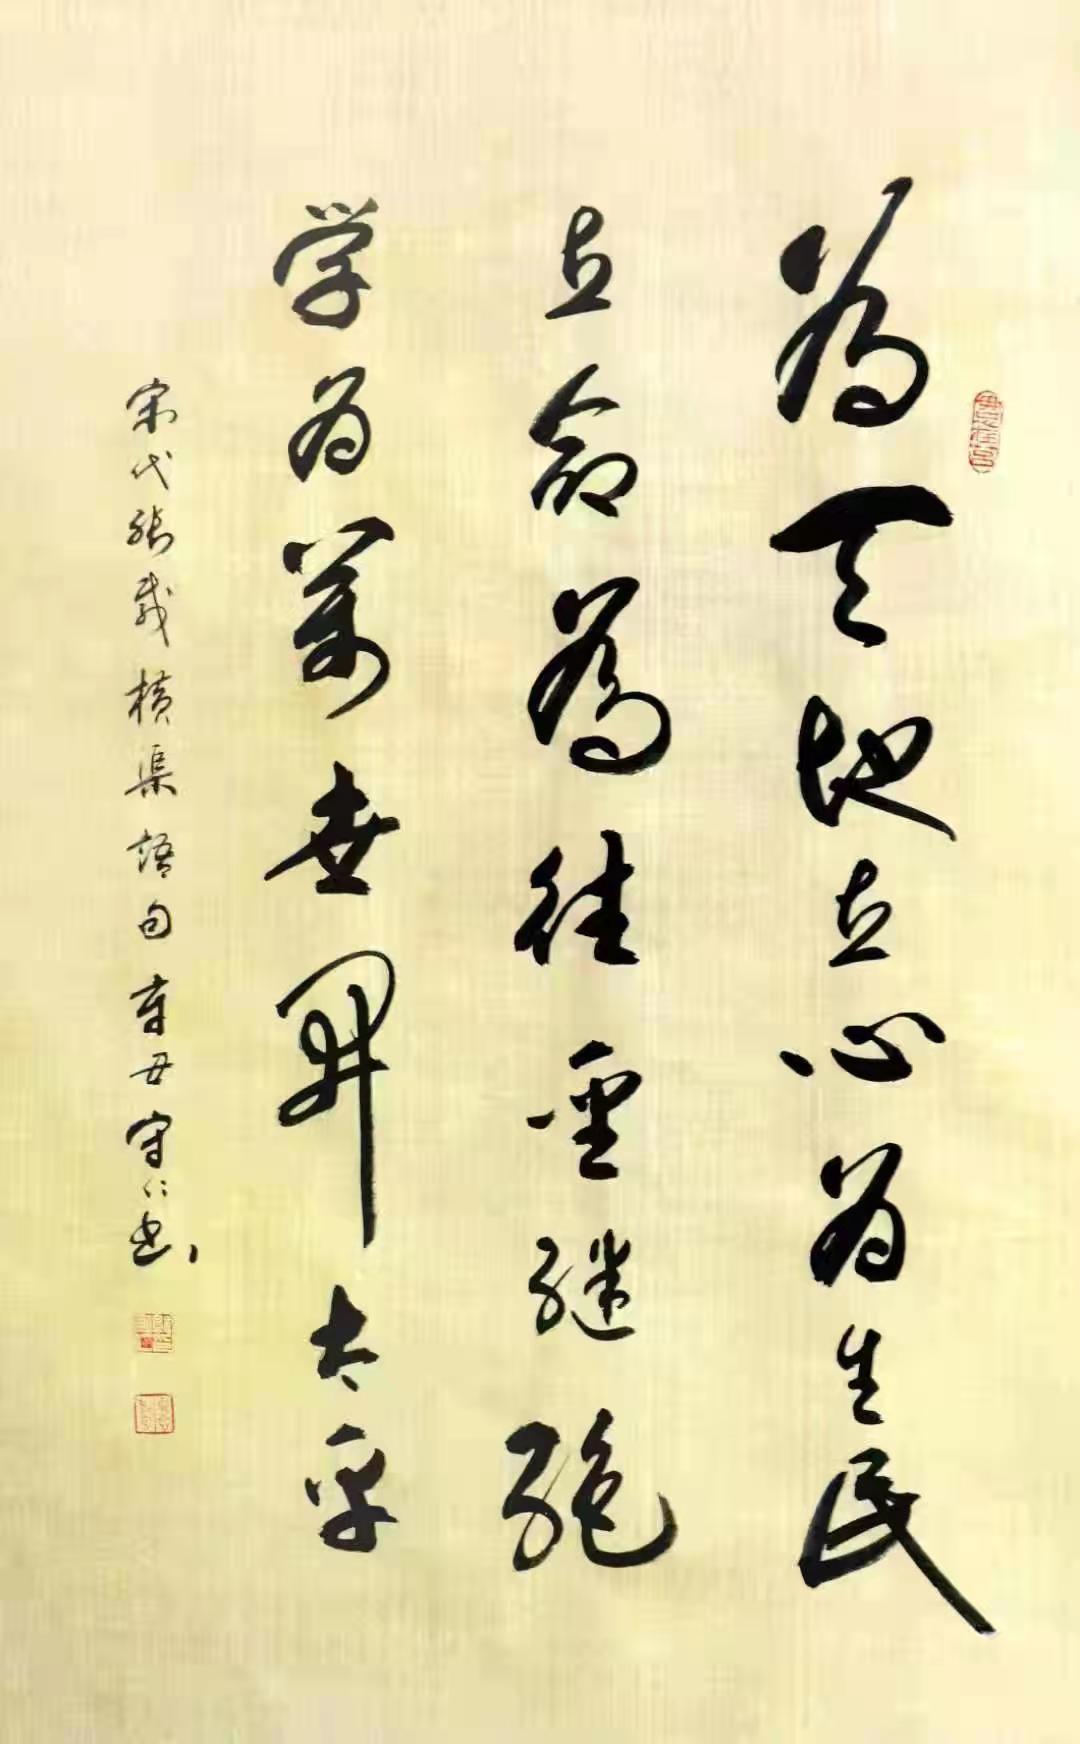 為天地立心为生民
立命為往聖继绝
学为萬世開太平
宋代张载横渠語句辛丑守仁书